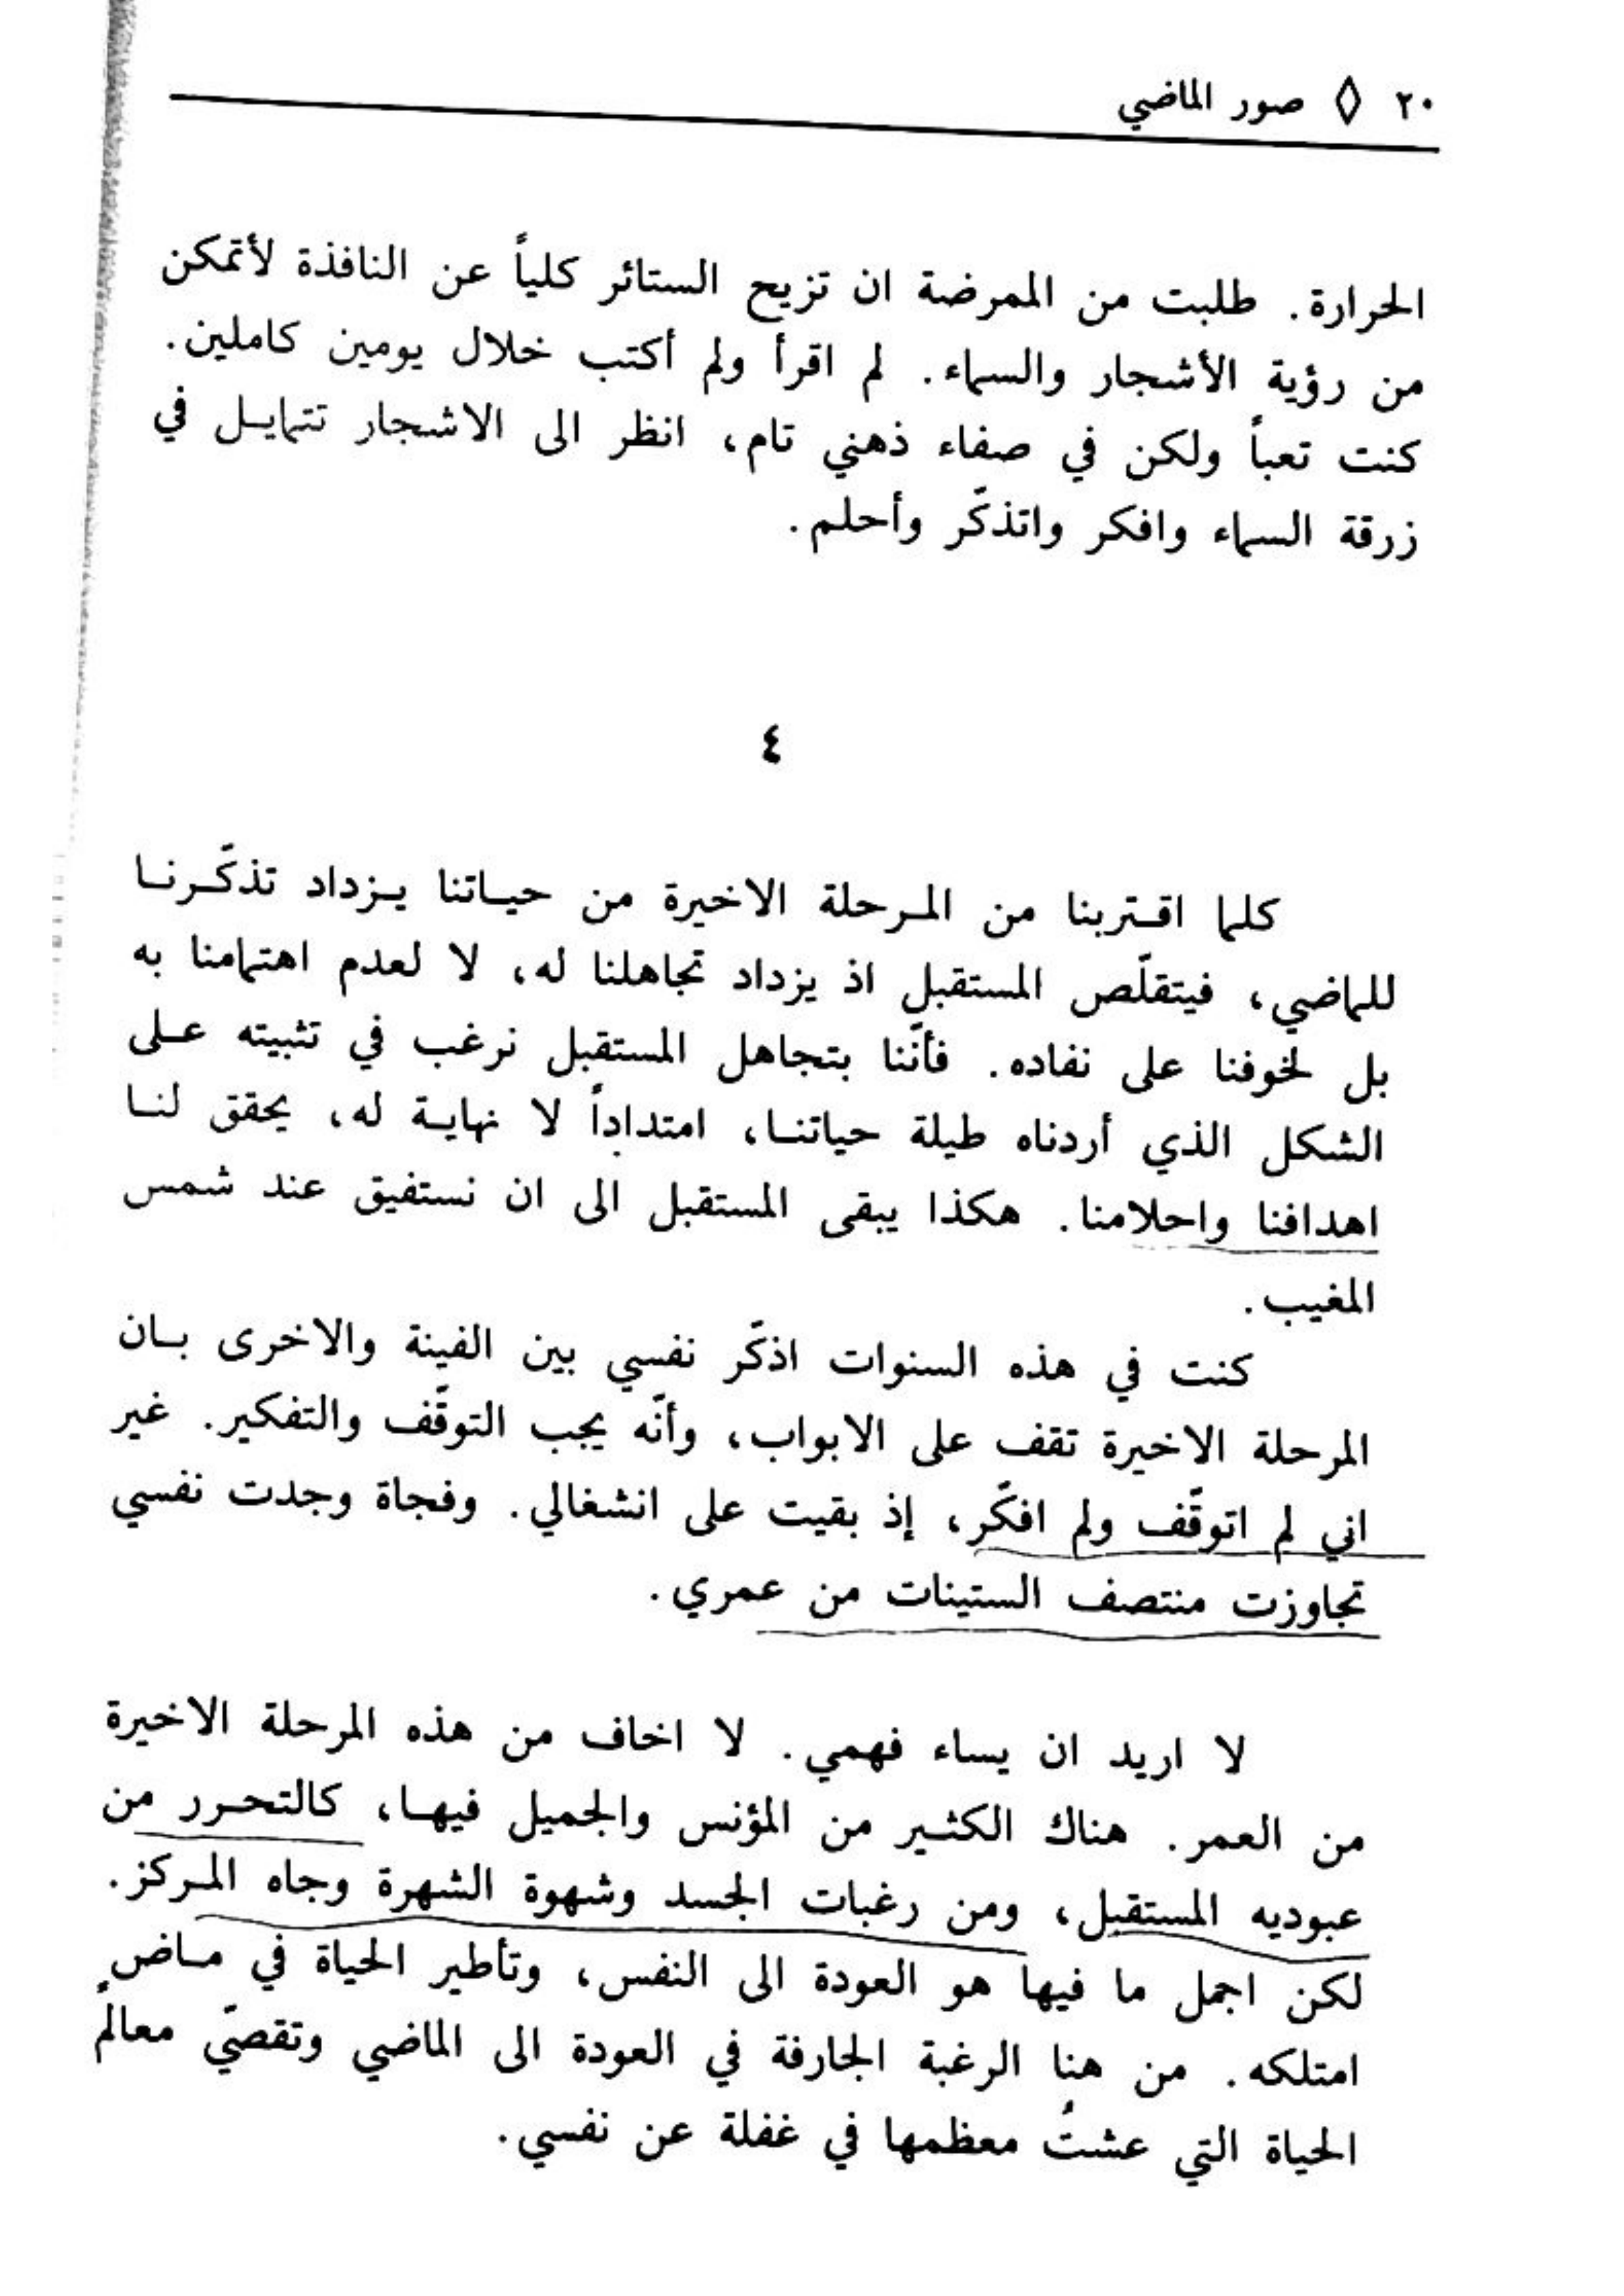 ٢٠ ◊ صور الماضي
الحرارة. طلبت من الممرضة ان تزيح الستائر كلياً عن النافذة لأتمكن
من رؤية الأشجار والسماء. لم اقرأ ولم أكتب خلال يومين كاملين.
كنت تعباً ولكن في صفاء ذهني تام، انظر الى الاشجار تتمايل في
زرقة السماء وافكر واتذكّر وأحلم.
٤
كلما اقتربنا من المرحلة الاخيرة من حياتنا يزداد تذكّرنا
للماضي، فيتقلّص المستقبل اذ يزداد تجاهلنا له، لا لعدم اهتمامنا به
بل لخوفنا على نفاده. فأنّنا بتجاهل المستقبل نرغب في تثبيته على
الشكل الذي أردناه طيلة حياتنا، امتداداً لا نهاية له، يحقق لنا
اهدافنا واحلامنا. هكذا يبقى المستقبل الى ان نستفيق عند شمس
المغيب.
كنت في هذه السنوات اذكّر نفسي بين الفينة والاخرى بان
المرحلة الاخيرة تقف على الابواب، وأنّه يجب التوقّف والتفكير. غير
اني لم اتوقّف ولم افكّر، إذ بقيت على انشغالي. وفجاة وجدت نفسي
تجاوزت منتصف الستينات من عمري.
لا اريد ان يساء فهمي. لا اخاف من هذه المرحلة الاخيرة
من العمر. هناك الكثير من المؤنس والجميل فيها، كالتحرر من
عبوديه المستقبل، ومن رغبات الجسد وشهوة الشهرة وجاه المركز.
لكن اجمل ما فيها هو العودة الى النفس، وتأطير الحياة في ماضٍ
امتلكه. من هنا الرغبة الجارفة في العودة الى الماضي وتقصّي معالم
الحياة التي عشتُ معظمها في غفلة عن نفسي.